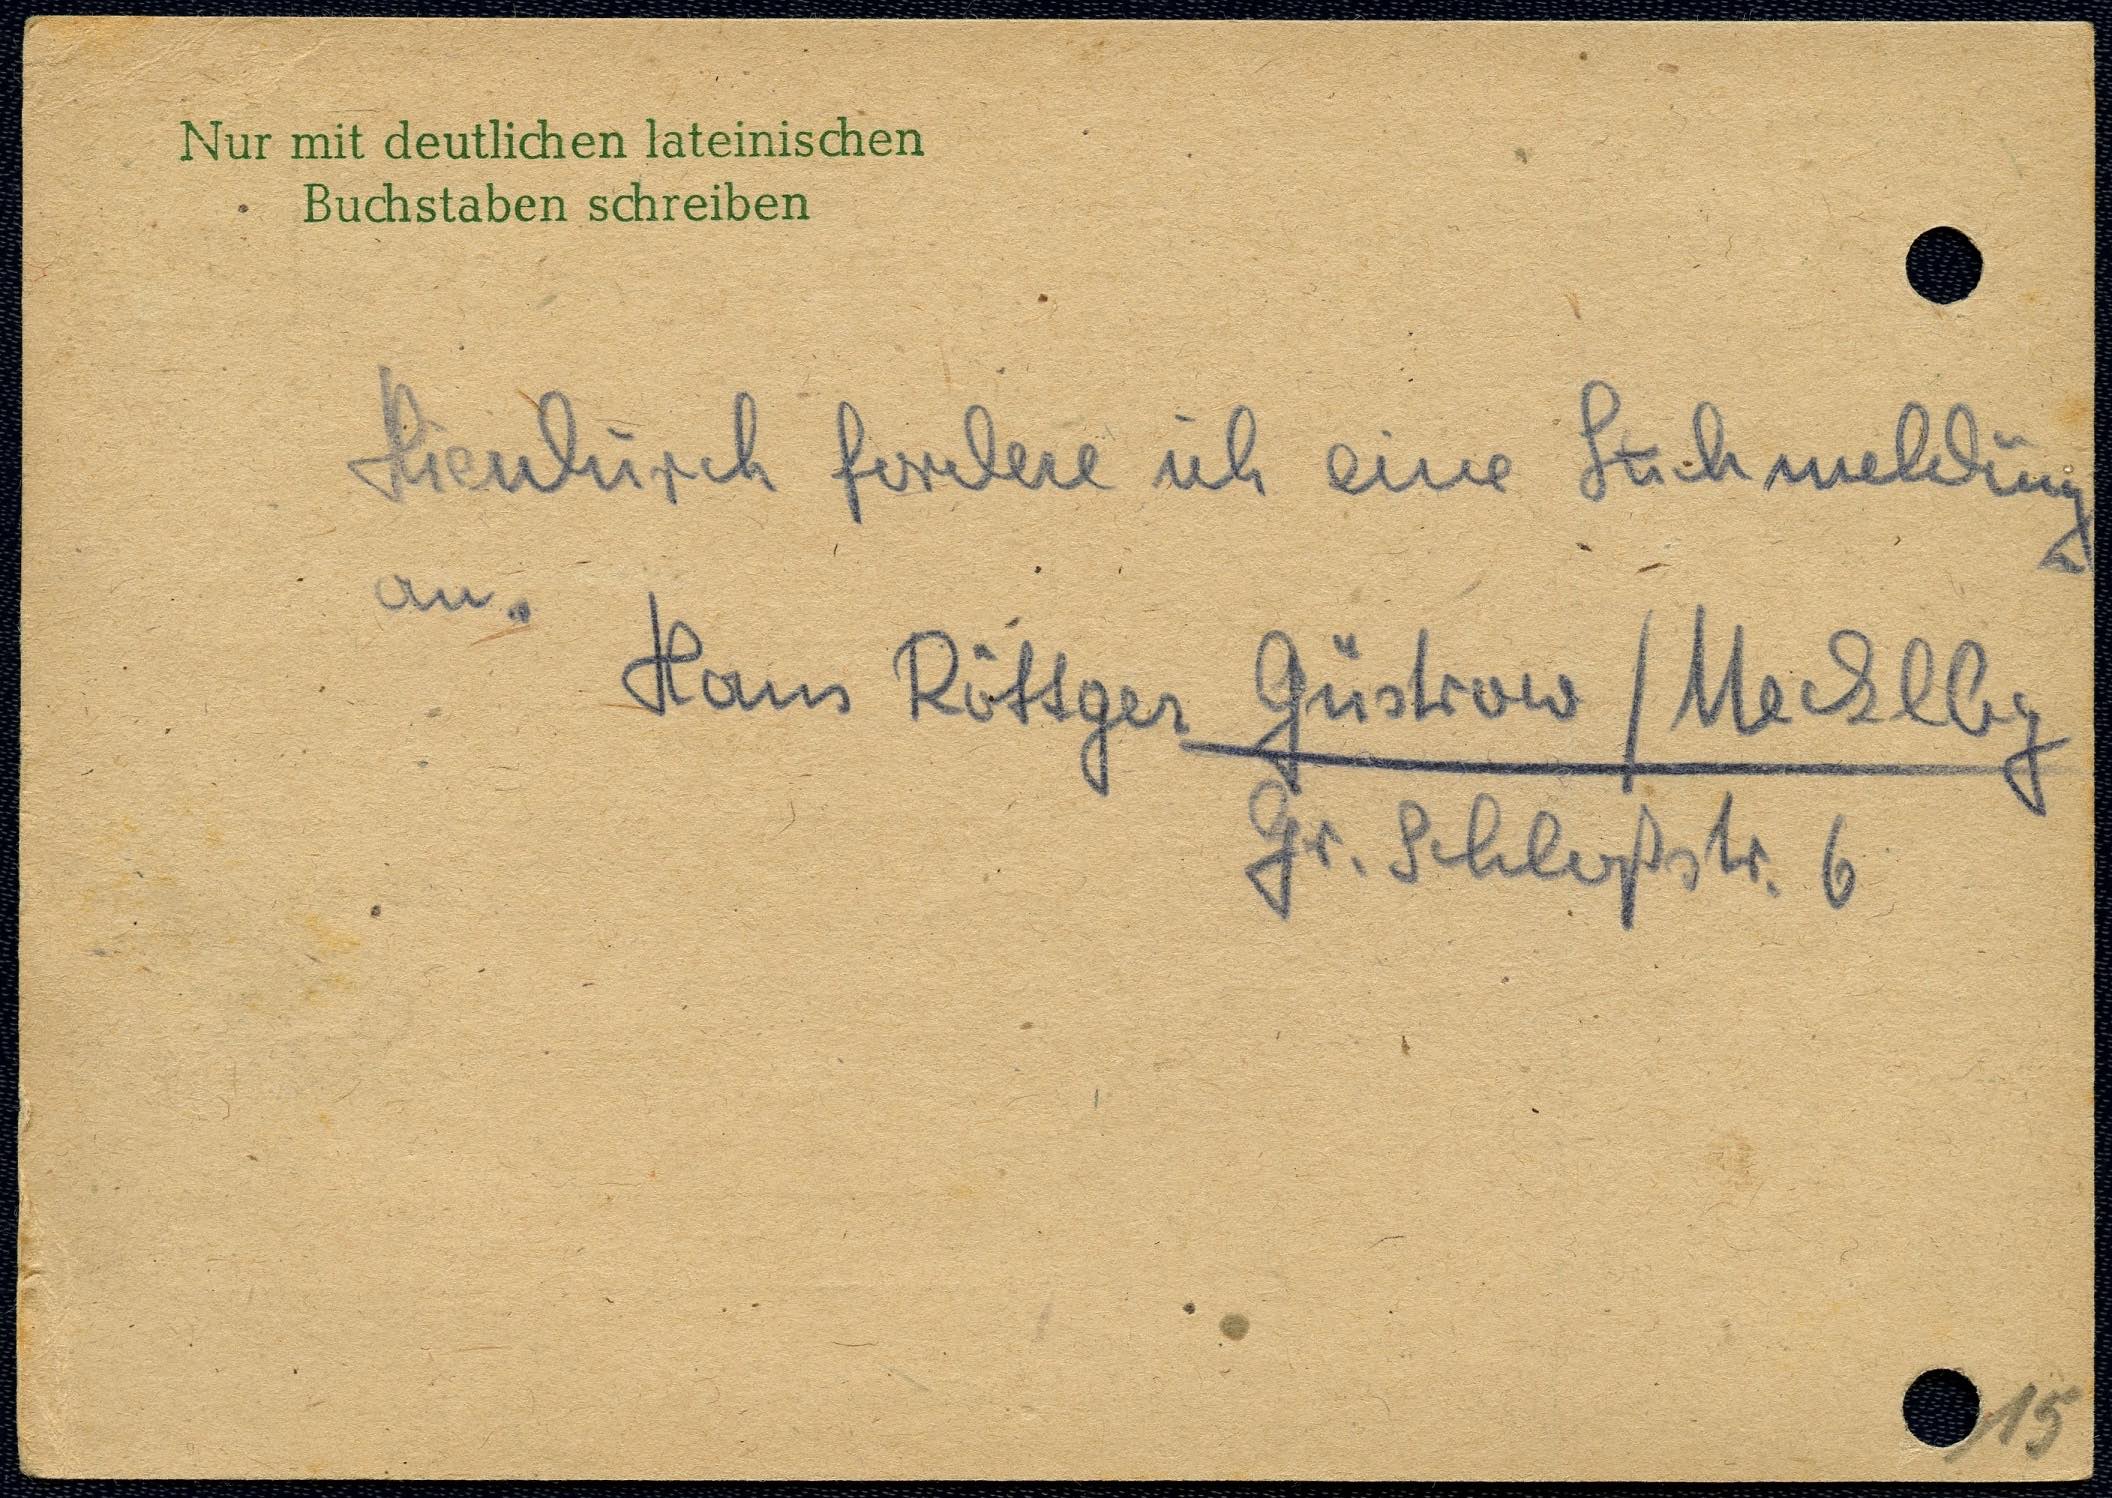 Nur mit deutlichen lateinischen
Buchstaben schreiben
Hierdurch fordere ich eine Suchmeldung
an.
Hans Röttger Güstrow / Mecklbg
Gr. Schloßstr. 6
15